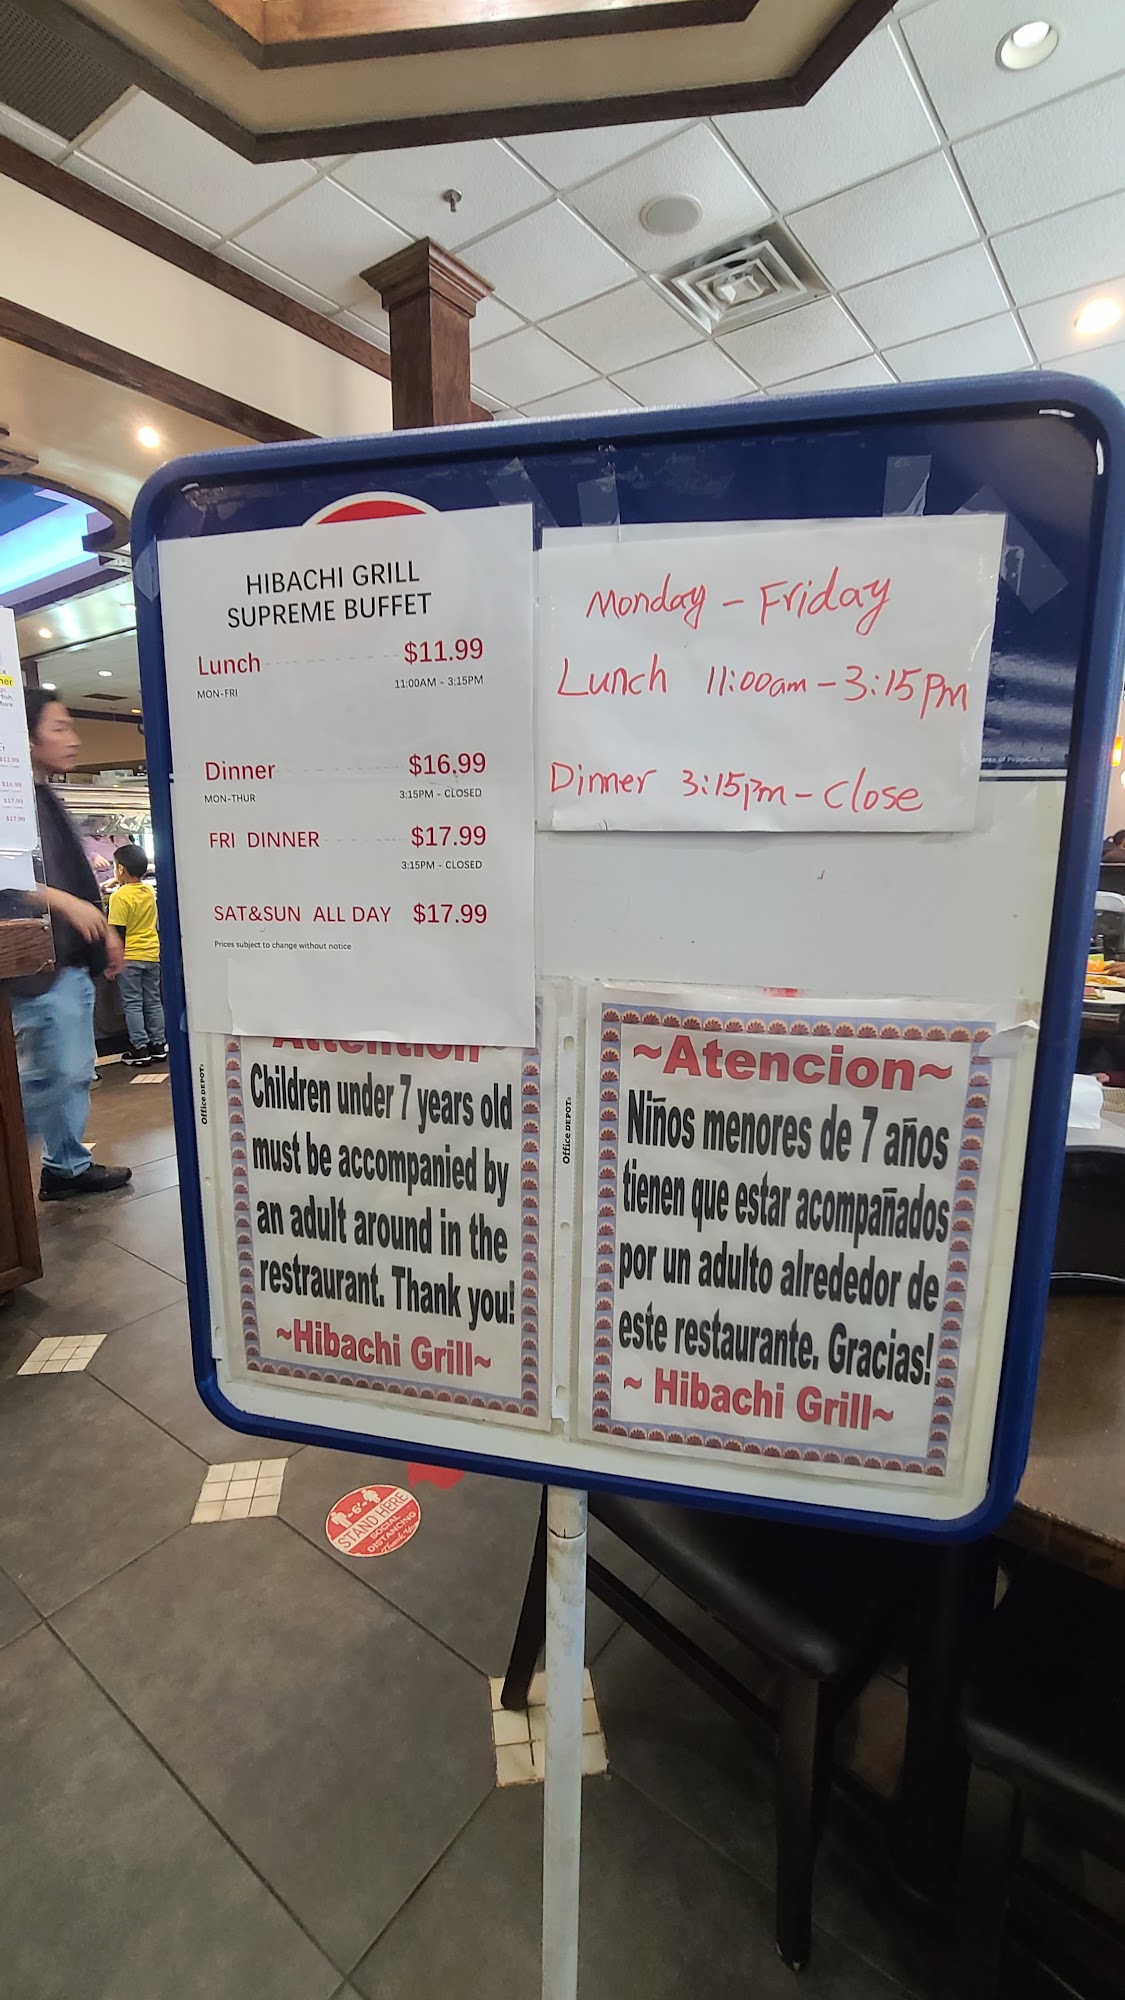 HIBACHI GRILL
SUPREME BUFFET
Lunch $11.99
MON-FRI 11:00AM - 3:15PM
Dinner $16.99
MON-THUR 3:15PM - CLOSED
FRI DINNER $17.99
3:15PM - CLOSED
SAT&SUN ALL DAY $17.99
Prices subject to change without notice
Monday - Friday
Lunch 11:00am - 3:15pm
Dinner 3:15pm - Close
Attention~
Children under 7 years old
must be accompanied by
an adult around in the
restraurant. Thank you!
~Hibachi Grill~
Office DEPOT
~Atencion~
Niños menores de 7 años
tienen que estar acompañados
por un adulto alrededor de
este restaurante. Gracias!
~ Hibachi Grill~
Office DEPOT
-6'-
STAND HERE
SOCIAL
DISTANCING
Thank You
$11.99
$16.99
$17.99
$17.99